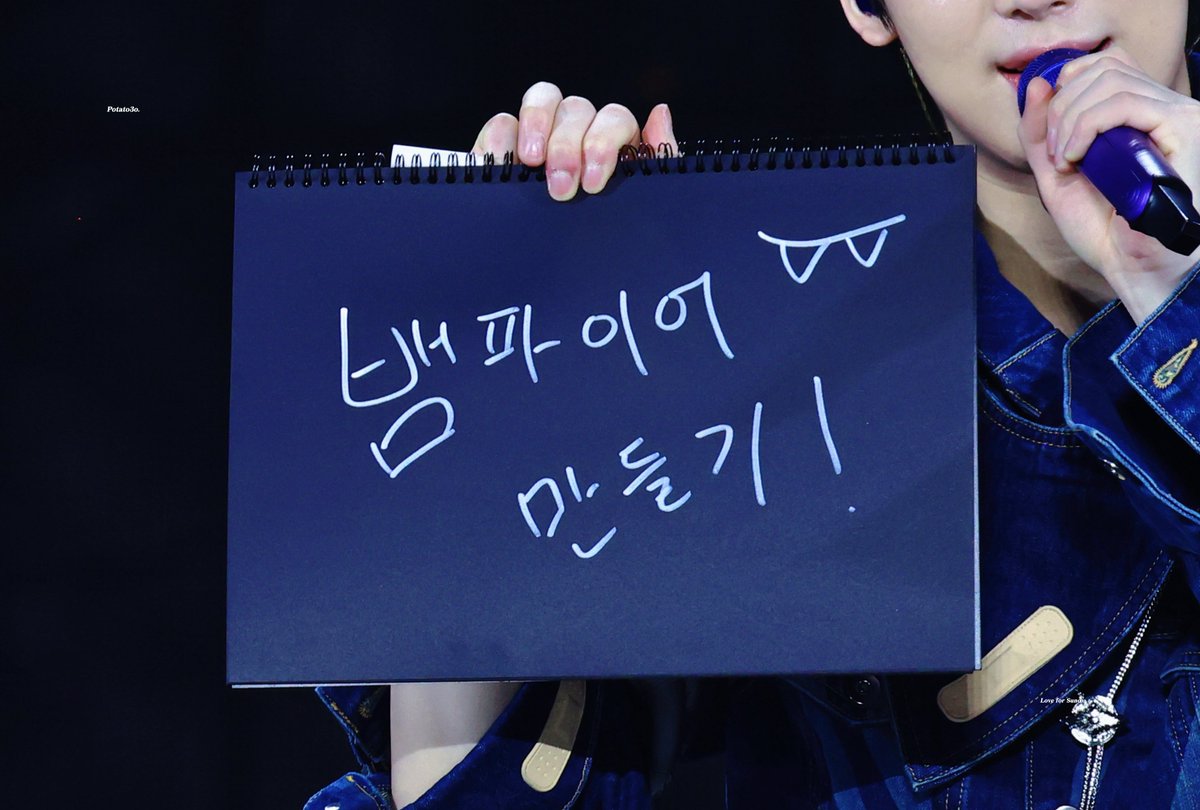 Potato3o.
뱀파이어
만들기!
Love for Sunoo